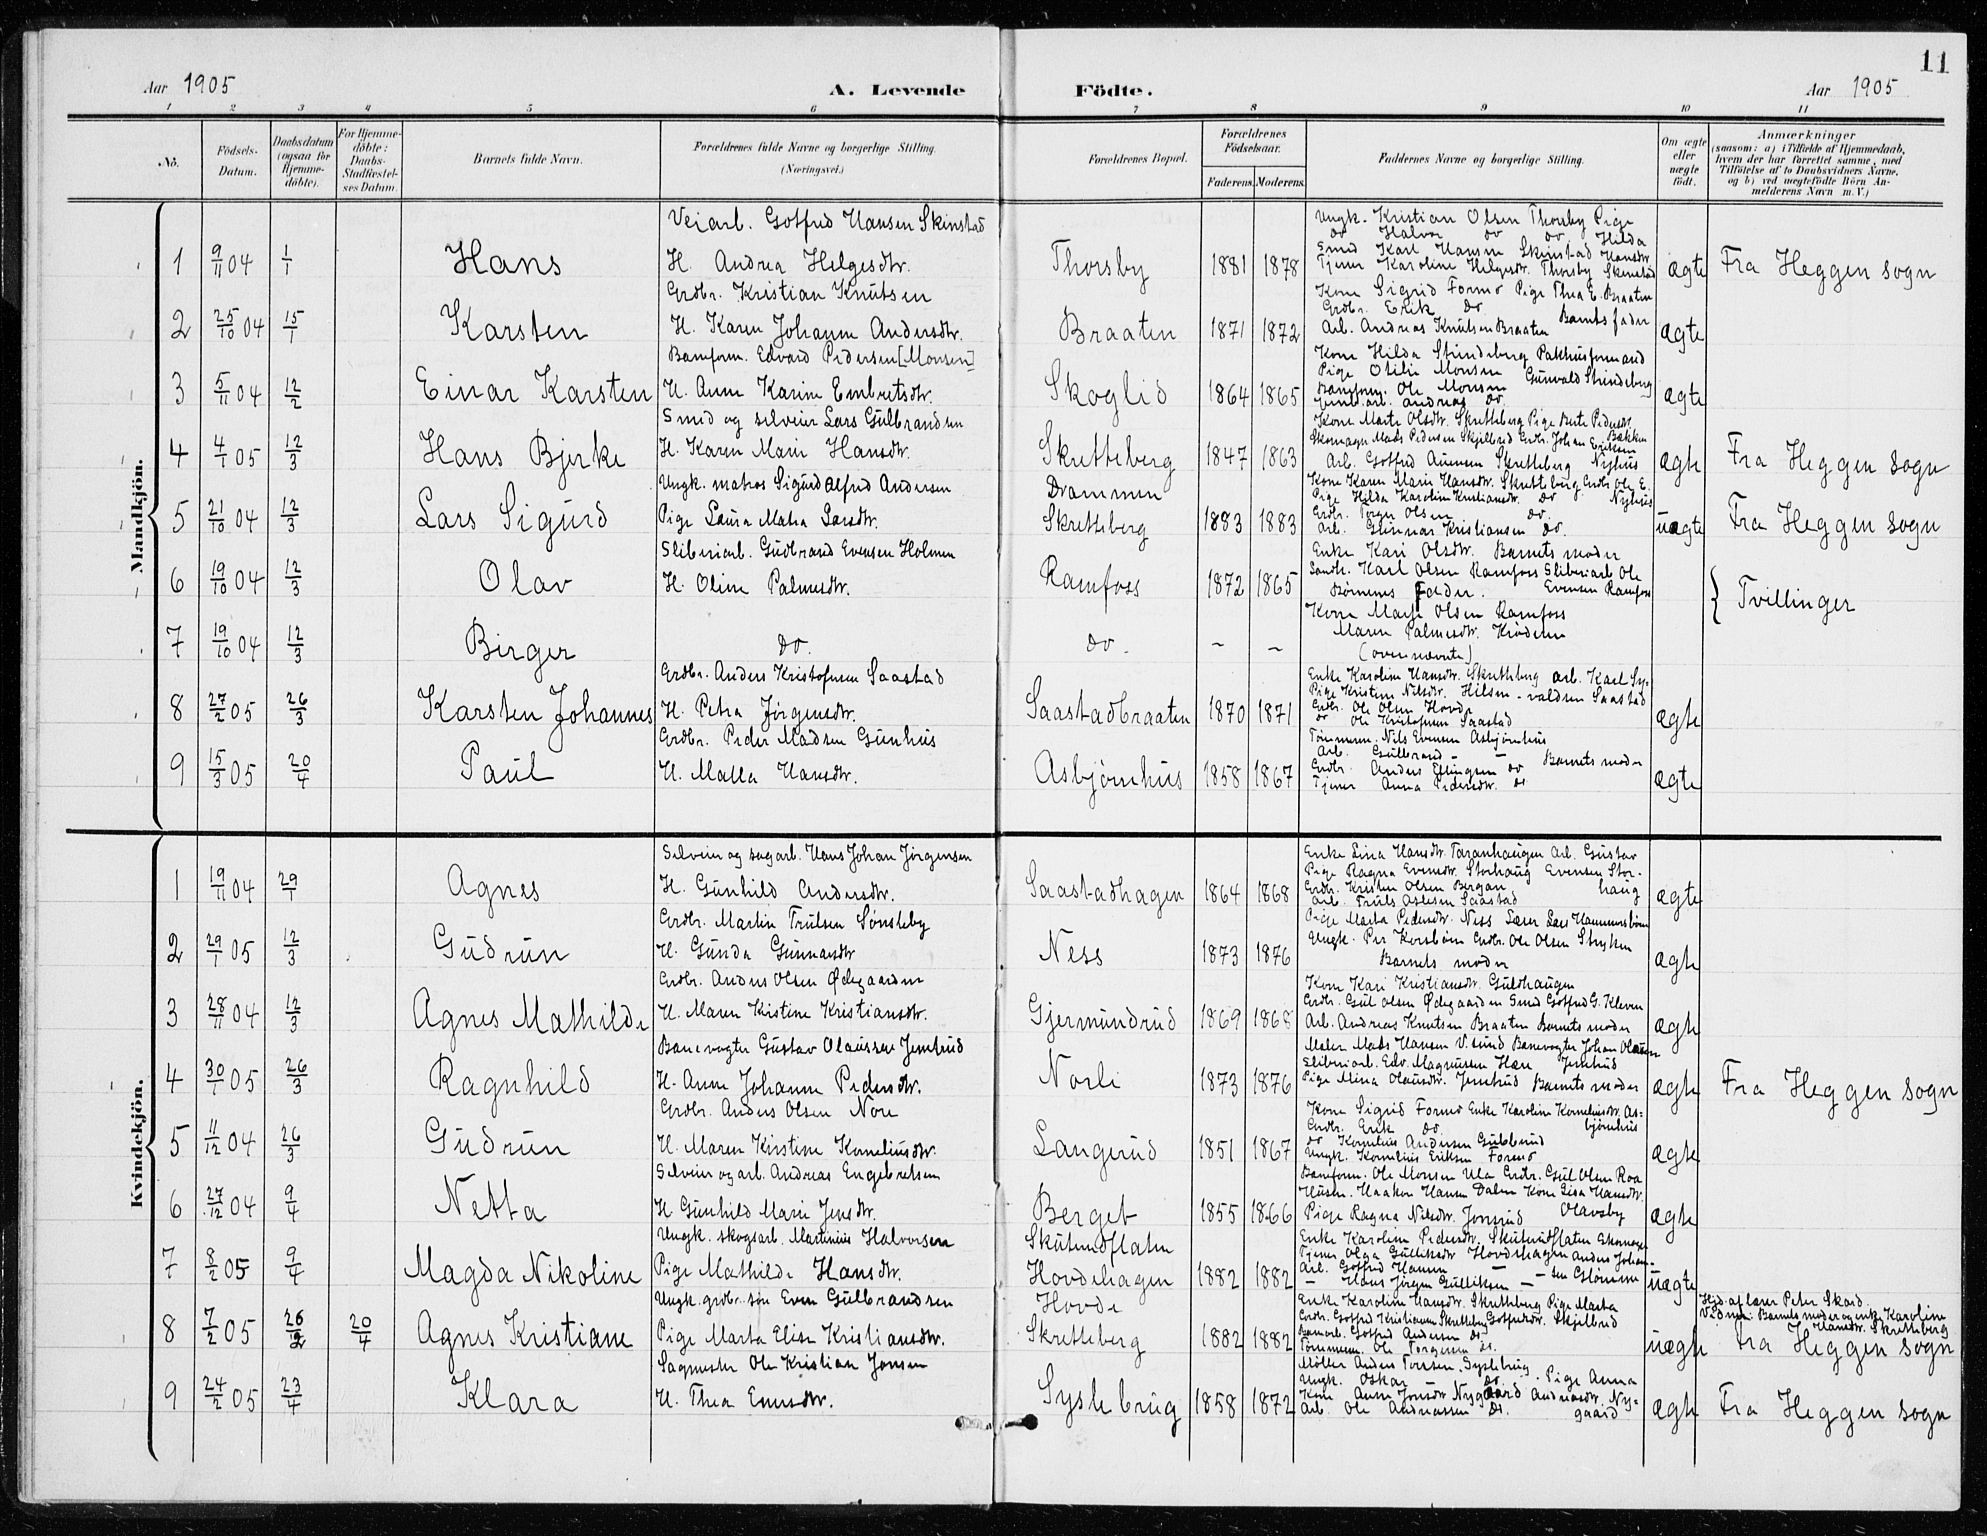 11
Aar 1905
A. Levende Födte.
Aar 1905
1 2 3 4 5 6 7 8 9 10 11
Nö.
Födsels-Datum.
Daabsdatum (ogsaa for Hjemme-döbte).
For Hjemme-döbte: Daabs-Stadfæstel-ses Datum.
Barnets fulde Navn.
Forældrenes fulde Navne og borgerlige Stilling. (Næringsvei.)
Forældrenes Bopæl.
Forældrenes Födselsaar.
Faderens. Moderens.
Faddernes Navne og borgerlige Stilling.
Om ægte eller uægte födt.
Anmærkninger
(saasom: a) i Tilfælde af Hjemmedaab, hvem der har forrettet samme, med Tilföielse af to Daabsvidners Navne, og b) ved uægtefödte Börn An-melderens Navn m. V.)
Mandkjön.
Veiarb. Gotfred Hansen Skinstad
Ungk. Kristian Olsen Thorsby Pige
do Halvor do do Hilda
1 9/11 04 1/1 Hans H. Andrea Helgesdtr. Thorsby 1881 1878 Smed Karl Hansen Skinstad Hansdtr. ægte Fra Heggen sogn
Tjener Karoline Helgesdtr. Thorsby Skinstad
Grdbr. Kristian Knutsen
Kone Sigrid Formo Pige Thea E. Braaten
Grdbr. Erik do Barnets fader
2 25/10 04 15/1 Karsten H. Karen Johanne Andersdtr. Braaten 1871 1872 Arb. Andreas Knutsen Braaten ægte
Banform. Edvard Pedersen [Monsen]
Kone Hilda Strindeberg Pakhusformand
Pige Otilie Monsen Gunvald Strindeberg
3 5/11 04 12/2 Einar Karsten H. Anne Karine Embretsdtr. Skoglid 1864 1865 Banform. Ole Monsen ægte
arb. Andreas do.
Smed og selveier Lars Gulbrandsen
Kone Marte Olsdtr. Skretteberg Pige Berte Pedersdtr.
Skomager Mads Pedersen Skjelbred Grdbr. Johan Eriksen Bakken
4 4/1 05 12/3 Hans Bjerke H. Karen Marie Hansdtr. Skretteberg 1847 1863 Arb. Gotfred Svensen Skretteberg Nyhus ægte Fra Heggen sogn
Ungk. matros Sigurd Alfred Andersen Drammen
Kone Karen Marie Hansdtr. Skretteberg Grdbr. Ole E.
Pige Hilda Karoline Kristiansdtr. do Nyhus
5 21/10 04 12/3 Lars Sigurd Pige Laura Matea Larsdtr. Skretteberg 1883 1883 Grdbr. Torger Olsen do. uægte Fra Heggen sogn
Arb. Gunnar Kristiansen do.
Sliberiarb. Gudbrand Evensen Holmen
Enke Kari Olsdtr. Barnets moder
6 19/10 04 12/3 Olav H. Oline Palmesdtr. Ramfoss 1872 1865 Karl Olsen Ramfoss Sliberiarb. Ole
Børnenes Fader. Evensen Ramfoss
} Tvillinger
Kone Marte Olsen Ramfoss
7 19/10 04 12/3 Birger do. do. ~ ~ Maren Palmesdtr. Krøderen
(ovennævnte)
Grdbr. Anders Kristofersen Saastad
Enke Karoline Hansdtr. Skretteberg Arb. Karl Sy-
Pige Kristine Nilsdtr. Hilsen - valdsen Saastad
8 27/2 05 26/3 Karsten Johannes H. Petra Jörgensdtr. Saastadbraaten 1870 1871 Grdbr. Ole Olsen Hovde ægte
do Ole Kristofersen Saastad
Grdbr. Peder Madsen Gunhus
Tömmerm. Nils Evensen Asbjörnhus
Arb. Gulbrand — — Barnets moder
9 15/3 05 20/4 Paul H. Malla Hansdtr. Asbjörnhus 1858 1867 Grdbr. Anders Ellingsen do ægte
Tjener Anna Pedersdtr. do
Kvindekjön.
Selveier og sagarb. Hans Johan Jörgensen
Enke Lina Hansdtr. Taranhaugen Arb. Gustav
Pige Ragna Evensdtr. Storhaug Evensen Stor-
1 19/11 04 29/1 Agnes H. Gunhild Andersdtr. Saastadhagen 1864 1868 Grdbr. Kristen Olsen Bergan haug ægte
Arb. Truls Aslesen Saastad
Grdbr. Martin Trulsen Sönsteby
Pige Marta Pedersdtr. Ness Lærer Lars Hammersbön
2 29/1 05 12/3 Gudrun H. Gunda Gunnarsdtr. Ness 1873 1876 Ungk. Per Korsbön Grdbr. Ole Olsen Stryken ægte
Barnets moder
Grdbr. Anders Olsen Ødegaarden
Kone Kari Kristiansdtr. Guldhaugen
3 28/11 04 12/3 Agnes Mathilde H. Maren Kristine Kristiansdtr. Gjermundrud 1869 1868 Grdbr. Gul Olsen Ødegaarden Smed Gotfred G. Kleven ægte
Arb. Andreas Knutsen Braaten Barnets moder
Banevogter Gustav Olaussen Jemtrud
Maler Mads Hansen V.sund Banevogter Johan Olausen
Sliberiarb. Edv. Magnussen Hære Jemtrud
4 30/1 05 26/3 Ragnhild H. Anne Johanne Pedersdtr. Norli 1873 1876 Pige Mina Olausdtr. Jemtrud Barnets moder ægte Fra Heggen sogn
Grdbr. Anders Olsen Nore
Kone Sigrid Formo Enke Karoline Korneliusdtr. As=
Grdbr. Erik do. bjørnhus
5 11/12 04 26/3 Gudrun H. Maren Kristine Korneliusdtr. Langerud 1851 1867 do Kornelius Andersen Gubberud ægte
Ungk. Kornelius Eriksen Formo
Selveier og arb. Andreas Engebretsen
Banform. Ole Monsen Ula Grdbr. Gul Olsen Roa
Husm. Haakon Hansen Dalen Kone Lisa Hansdtr.
6 27/12 04 9/4 Netta H. Gunhild Marie Jensdtr. Berget 1855 1866 Pige Ragna Nilsdtr. Jonsrud Olavsby ægte
Ungk. skogsarb. Martinius Halvorsen Skutundflaten
Enke Karoline Pedersdtr. Skutundflaten Skomager
Tjener Olga Gulliksdtr. Hovdehagen Anders Johan-
7 8/2 05 9/4 Magda Nikoline Pige Mathilde Hansdtr. Hovdehagen 1882 1882 Arb. Gotfred Hansen — — sen Glömmen uægte
— Hans Jörgen Gulliksen — —
Ungk. grdbr. søn Even Gulbrandsen Hovde
Enke Karoline Hansdtr. Skretteberg Pige Marta
Grdbr. Gotfred Kristiansen Skretteberg Gotfredsdtr. Skjelbred
Hjd. af lærer Peter Skard
Vidner: Barnets moder og enke Karoline
Hansdtr. Skretteberg
8 7/2 05 26/2 20/4 Agnes Kristiane Pige Marta Elise Kristiansdtr. Skretteberg 1882 1882 Gotfred Andersen do uægte Fra Heggen sogn
Tömmerm. Ole Torgersen do.
Sagmester Ole Kristian Jonsen
Möller Anders Tovsen Syslebrug
Ungk. Oskar do. Pige Anna
9 24/2 05 23/4 Klara H. Thea Evensdtr. Syslebrug 1858 1872 Kone Anne Jonsdtr. Nygaard Andreasdtr. Ny= ægte Fra Heggen sogn
Arb. Ole Andreassen do. gaard